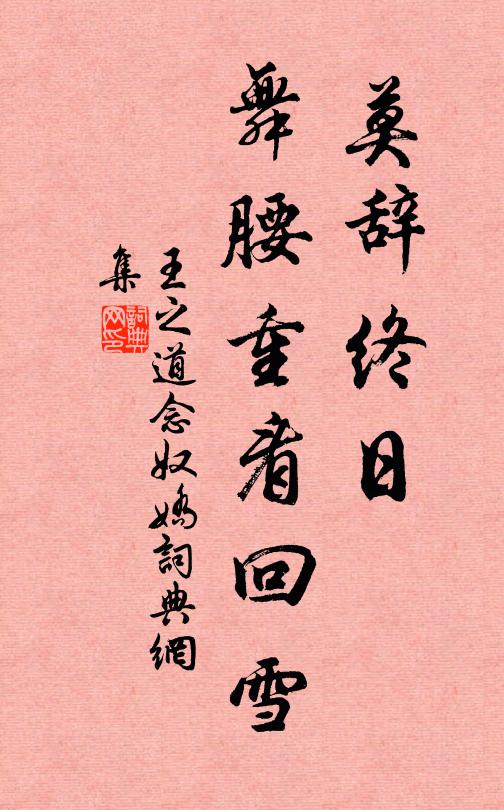 莫辞终日
舞腰重看回雪
王之道念奴嬌詞典網
集
詞典网印